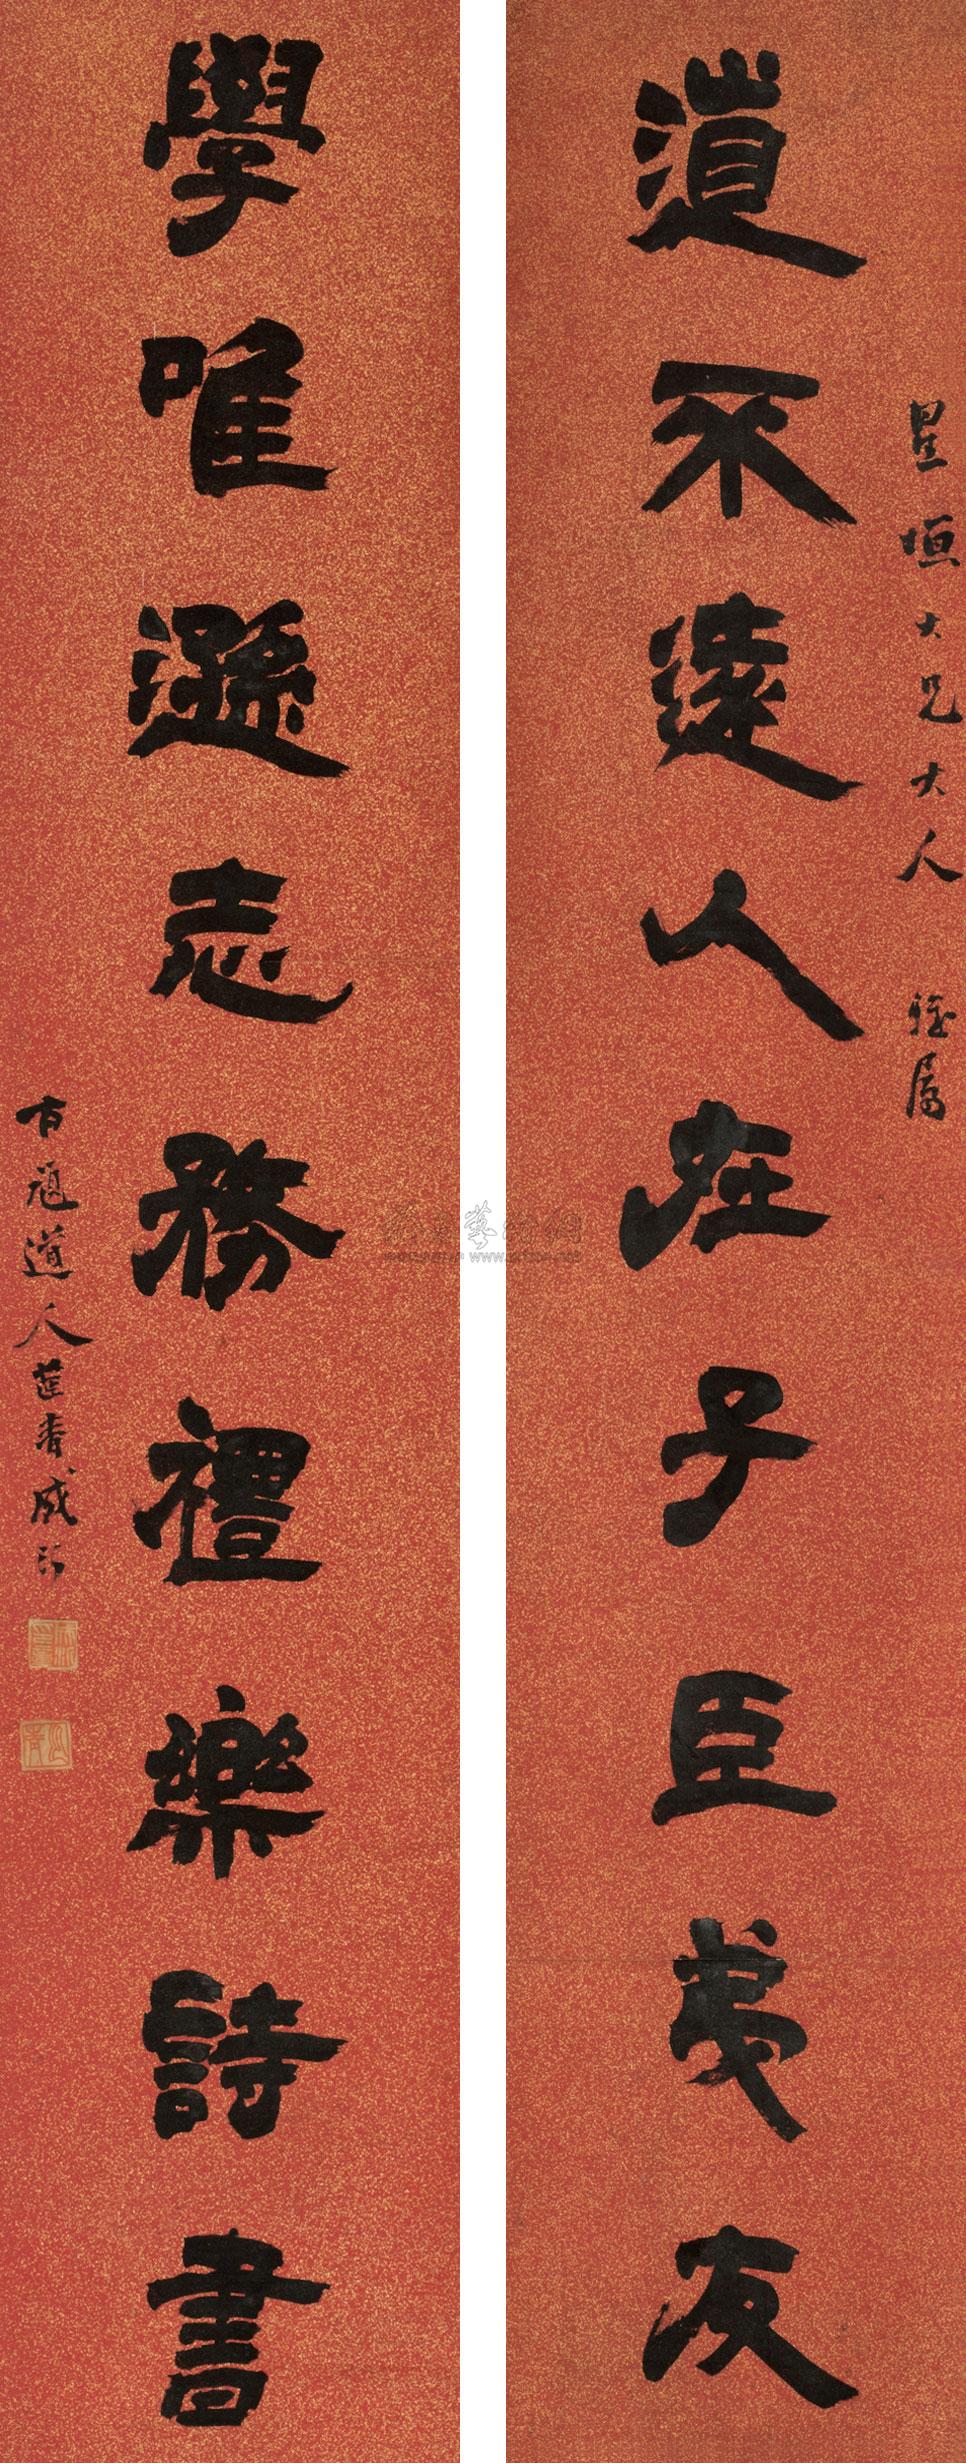 星垣大兄大人 雅属
道不遠人在子臣弟友
學唯遜志務禮樂詩書
道人芷青成沂